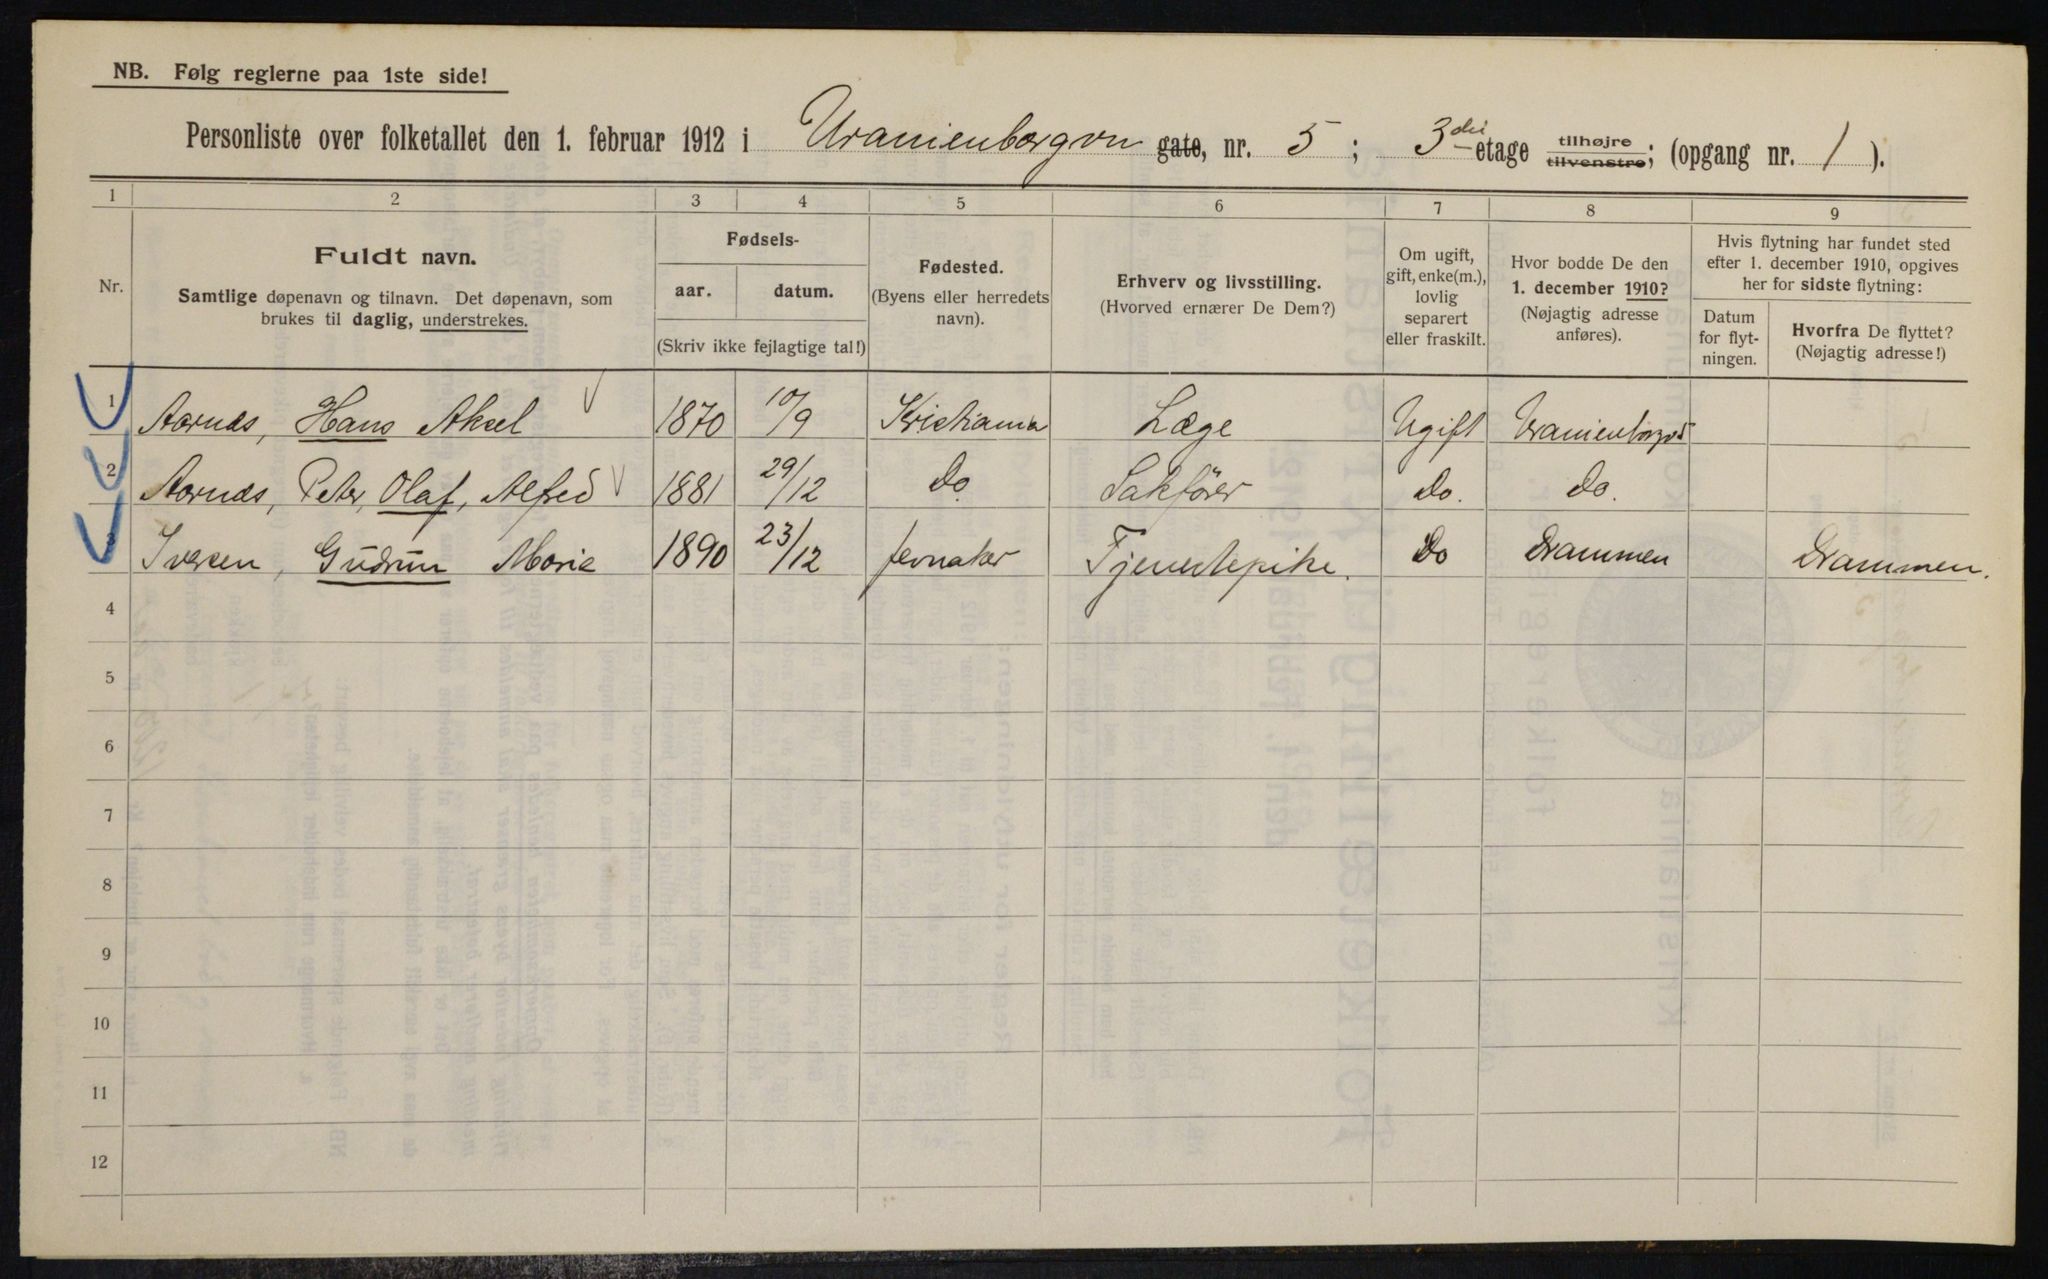 NB. Følg reglerne paa 1ste side!
Personliste over folketallet den 1. februar 1912 i Uranienborgvn gate, nr. 5; 3die etage tilhøjre tilvenstre; (opgang nr. 1).
1 2 3 4 5 6 7 8 9
Nr.
Fuldt navn.
Samtlige døpenavn og tilnavn. Det døpenavn, som
brukes til daglig, understrekes.
Fødsels-
aar. datum.
(Skriv ikke fejlagtige tal!)
Fødested.
(Byens eller herredets
navn).
Erhverv og livsstilling.
(Hvorved ernærer De Dem?)
Om ugift,
gift, enke(m.),
lovlig
separert
eller fraskilt.
Hvor bodde De den
1. december 1910?
(Nøjagtig adresse
anføres).
Hvis flytning har fundet sted
efter 1. december 1910, opgives
her for sidste flytning:
Datum
for flyt-
ningen.
Hvorfra De flyttet?
(Nøjagtig adresse!)
1 Aarnæs, Hans Aksel 1870 10/9 Kristiania Læge Ugift Uranienborgv 5
2 Aarnæs, Peter, Olaf, Alfred 1881 29/12 Do. Sakfører Do. Do.
3 Iversen, Gudrun Marie 1890 23/12 Jevnaker Tjenestepike. Do Drammen Drammen.
4
5
6
7
8
9
10
11
12